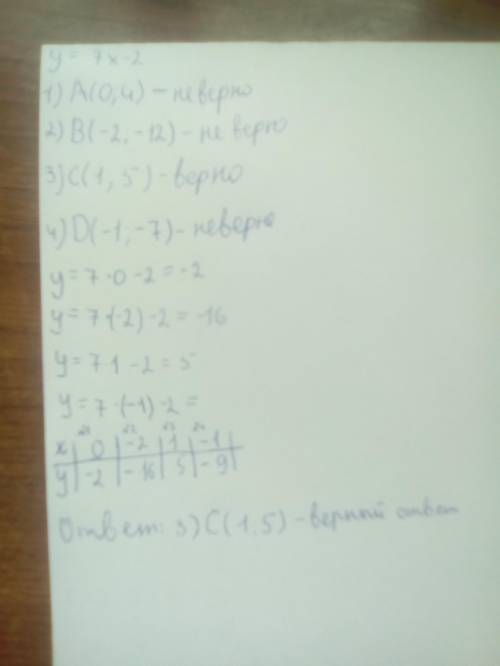 y = 7x-2
1) A(0,4) - неверно
2) B(-2, -12) - не верно
3) C(1, 5) - верно
4) D(-1, -7) - неверно
y = 7·0 -2 = -2
y = 7·(-2) -2 = -16
y = 7·1 -2 = 5
y = 7·(-1)-2 =
x | 0 | -2 | 1 | -1 |
y | -2 | -16 | 5 | -9 |
Ответ: 3) C(1,5) - верный ответ